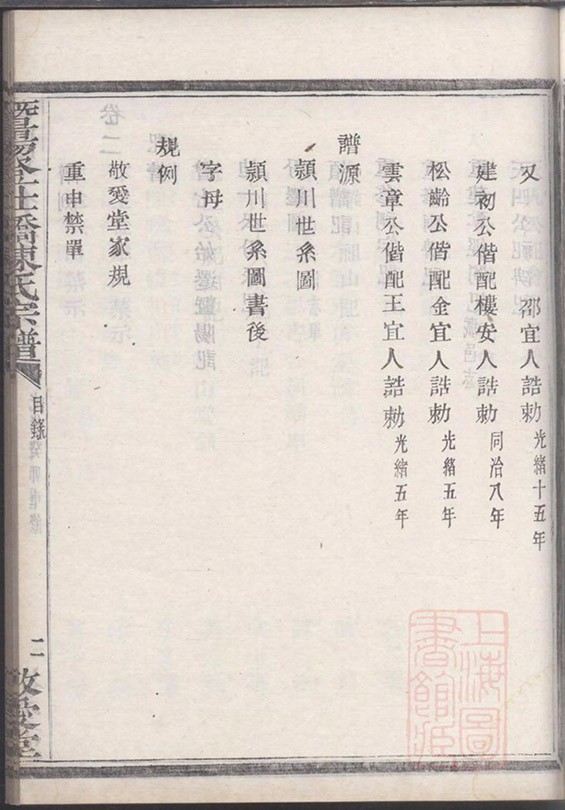 又　邵宜人誥勅光緒十五年
建初公偕配樓安人誥勅同治八年
松齡公偕配金宜人誥勅光緒五年
雲章公偕配王宜人誥勅光緒五年
譜源
潁川世系圖
潁川世系圖書後
字母
規例
敬愛堂家規
重申禁單
橋陳氏宗譜
目錄
二
敬愛堂
上海圖書館藏